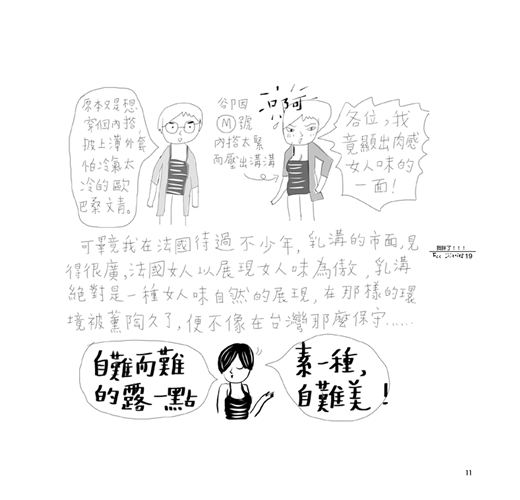 原本只是想
穿個內搭,
披上薄外套
怕冷氣太
冷的歐
巴桑文青。
卻因
Ⓜ號
內搭太緊
而壓出溝溝
啊
各位,我
竟顯出肉感
女人味的
一面!
可畢竟我在法國待過不少年,乳溝的市面,見
得很廣,法國女人以展現女人味為傲,乳溝
絕對是一種女人味自然的展現,在那樣的環
境被薰陶久了,便不像在台灣那麼保守……
自難而難
的露一點
素一種,
自難美!
19
11